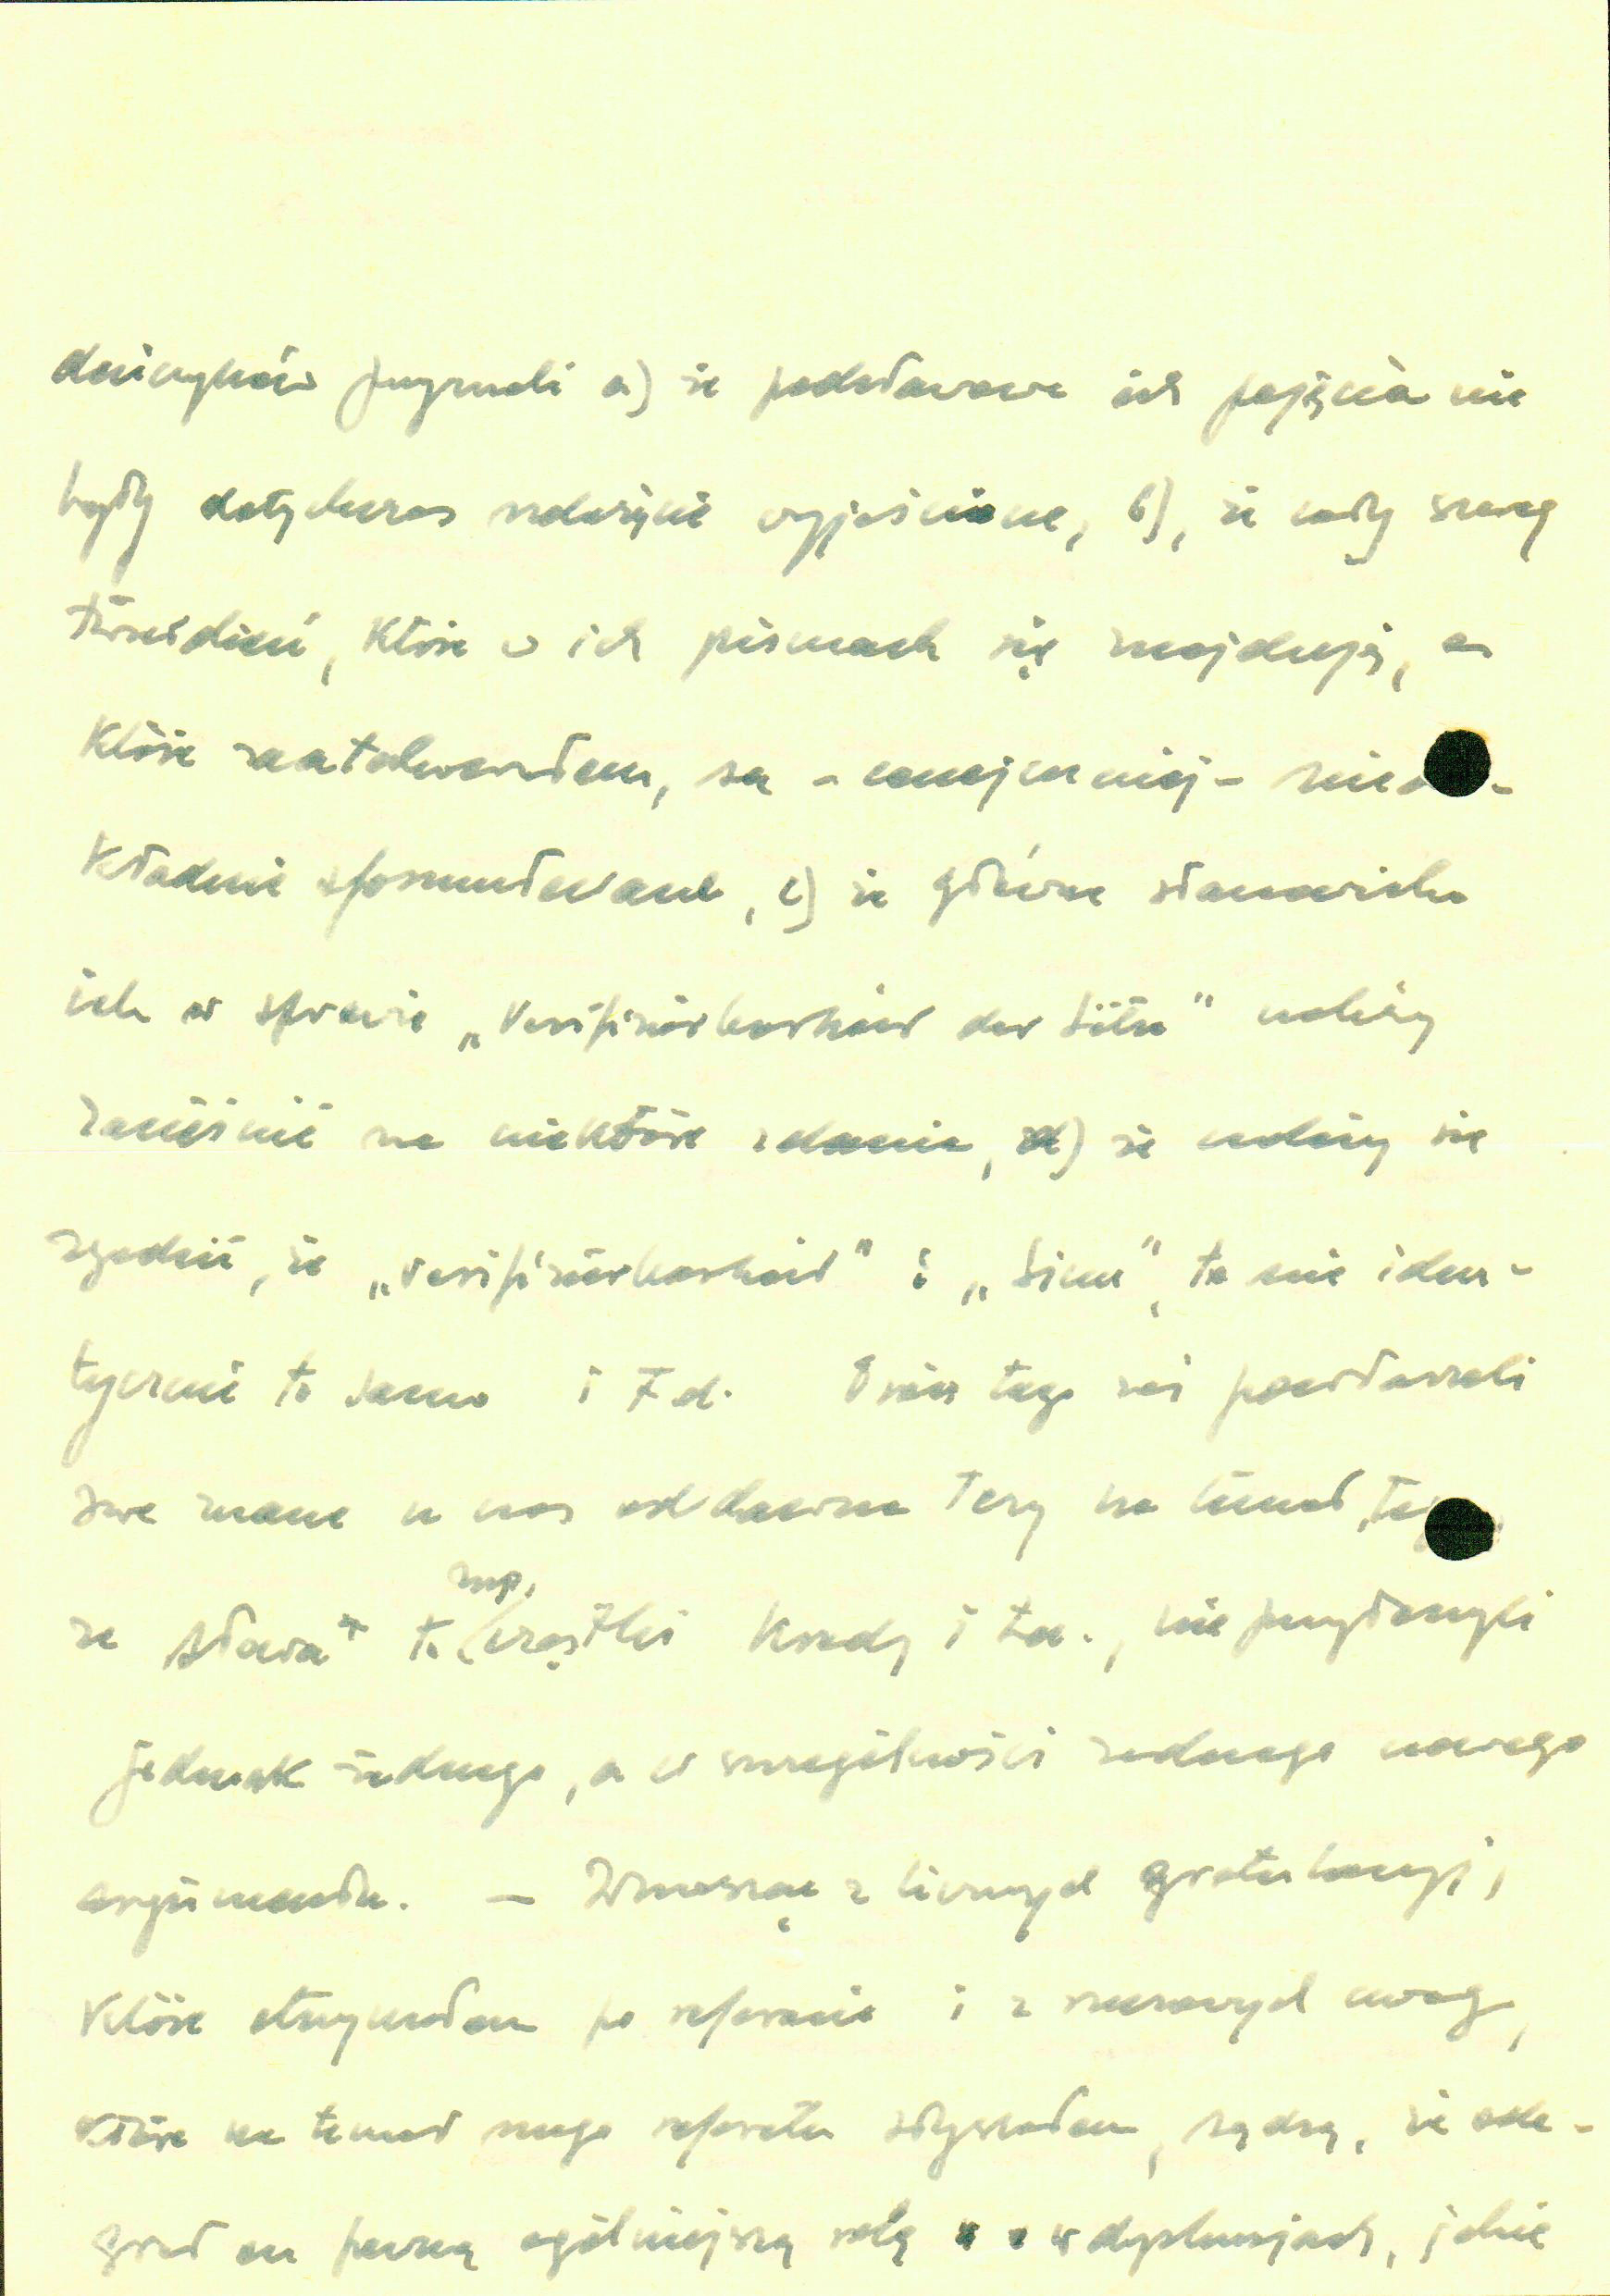 deńczyków przyznali a) że podstawowe ich pojęcia nie
były dotychczas należycie wyjaśnione, b), że cały szereg
twierdzeń, które w ich pismach się znajdują, a
które zaatakowałem, są - conajmniej - niedo-
kładnie sformułowane, c) że główne stanowisko
ich w sprawie „Verifizierbarkeit der Sätze" należy
zacieśnić na niektóre zdania, d) że należy się
zgodzić, że „Verifizierbarkeit" i „Sinn", to nie iden-
tycznie to samo i t d. Prócz tego zaś powtarzali
swe znane u nas oddawna tezy na temat, tego
że słowa to np. cząstki kredy i t.d., nie przytoczyli
jednak żadnego, a w szczególności żadnego nowego
argumentu. — Wnosząc z licznych gratulacyj,
które otrzymałem po referacie i z szeregu uwag,
które na temat mego referatu słyszałem, sądzę, że ode-
grał on pewną ogólniejszą rolę w dyskusjach, jakie